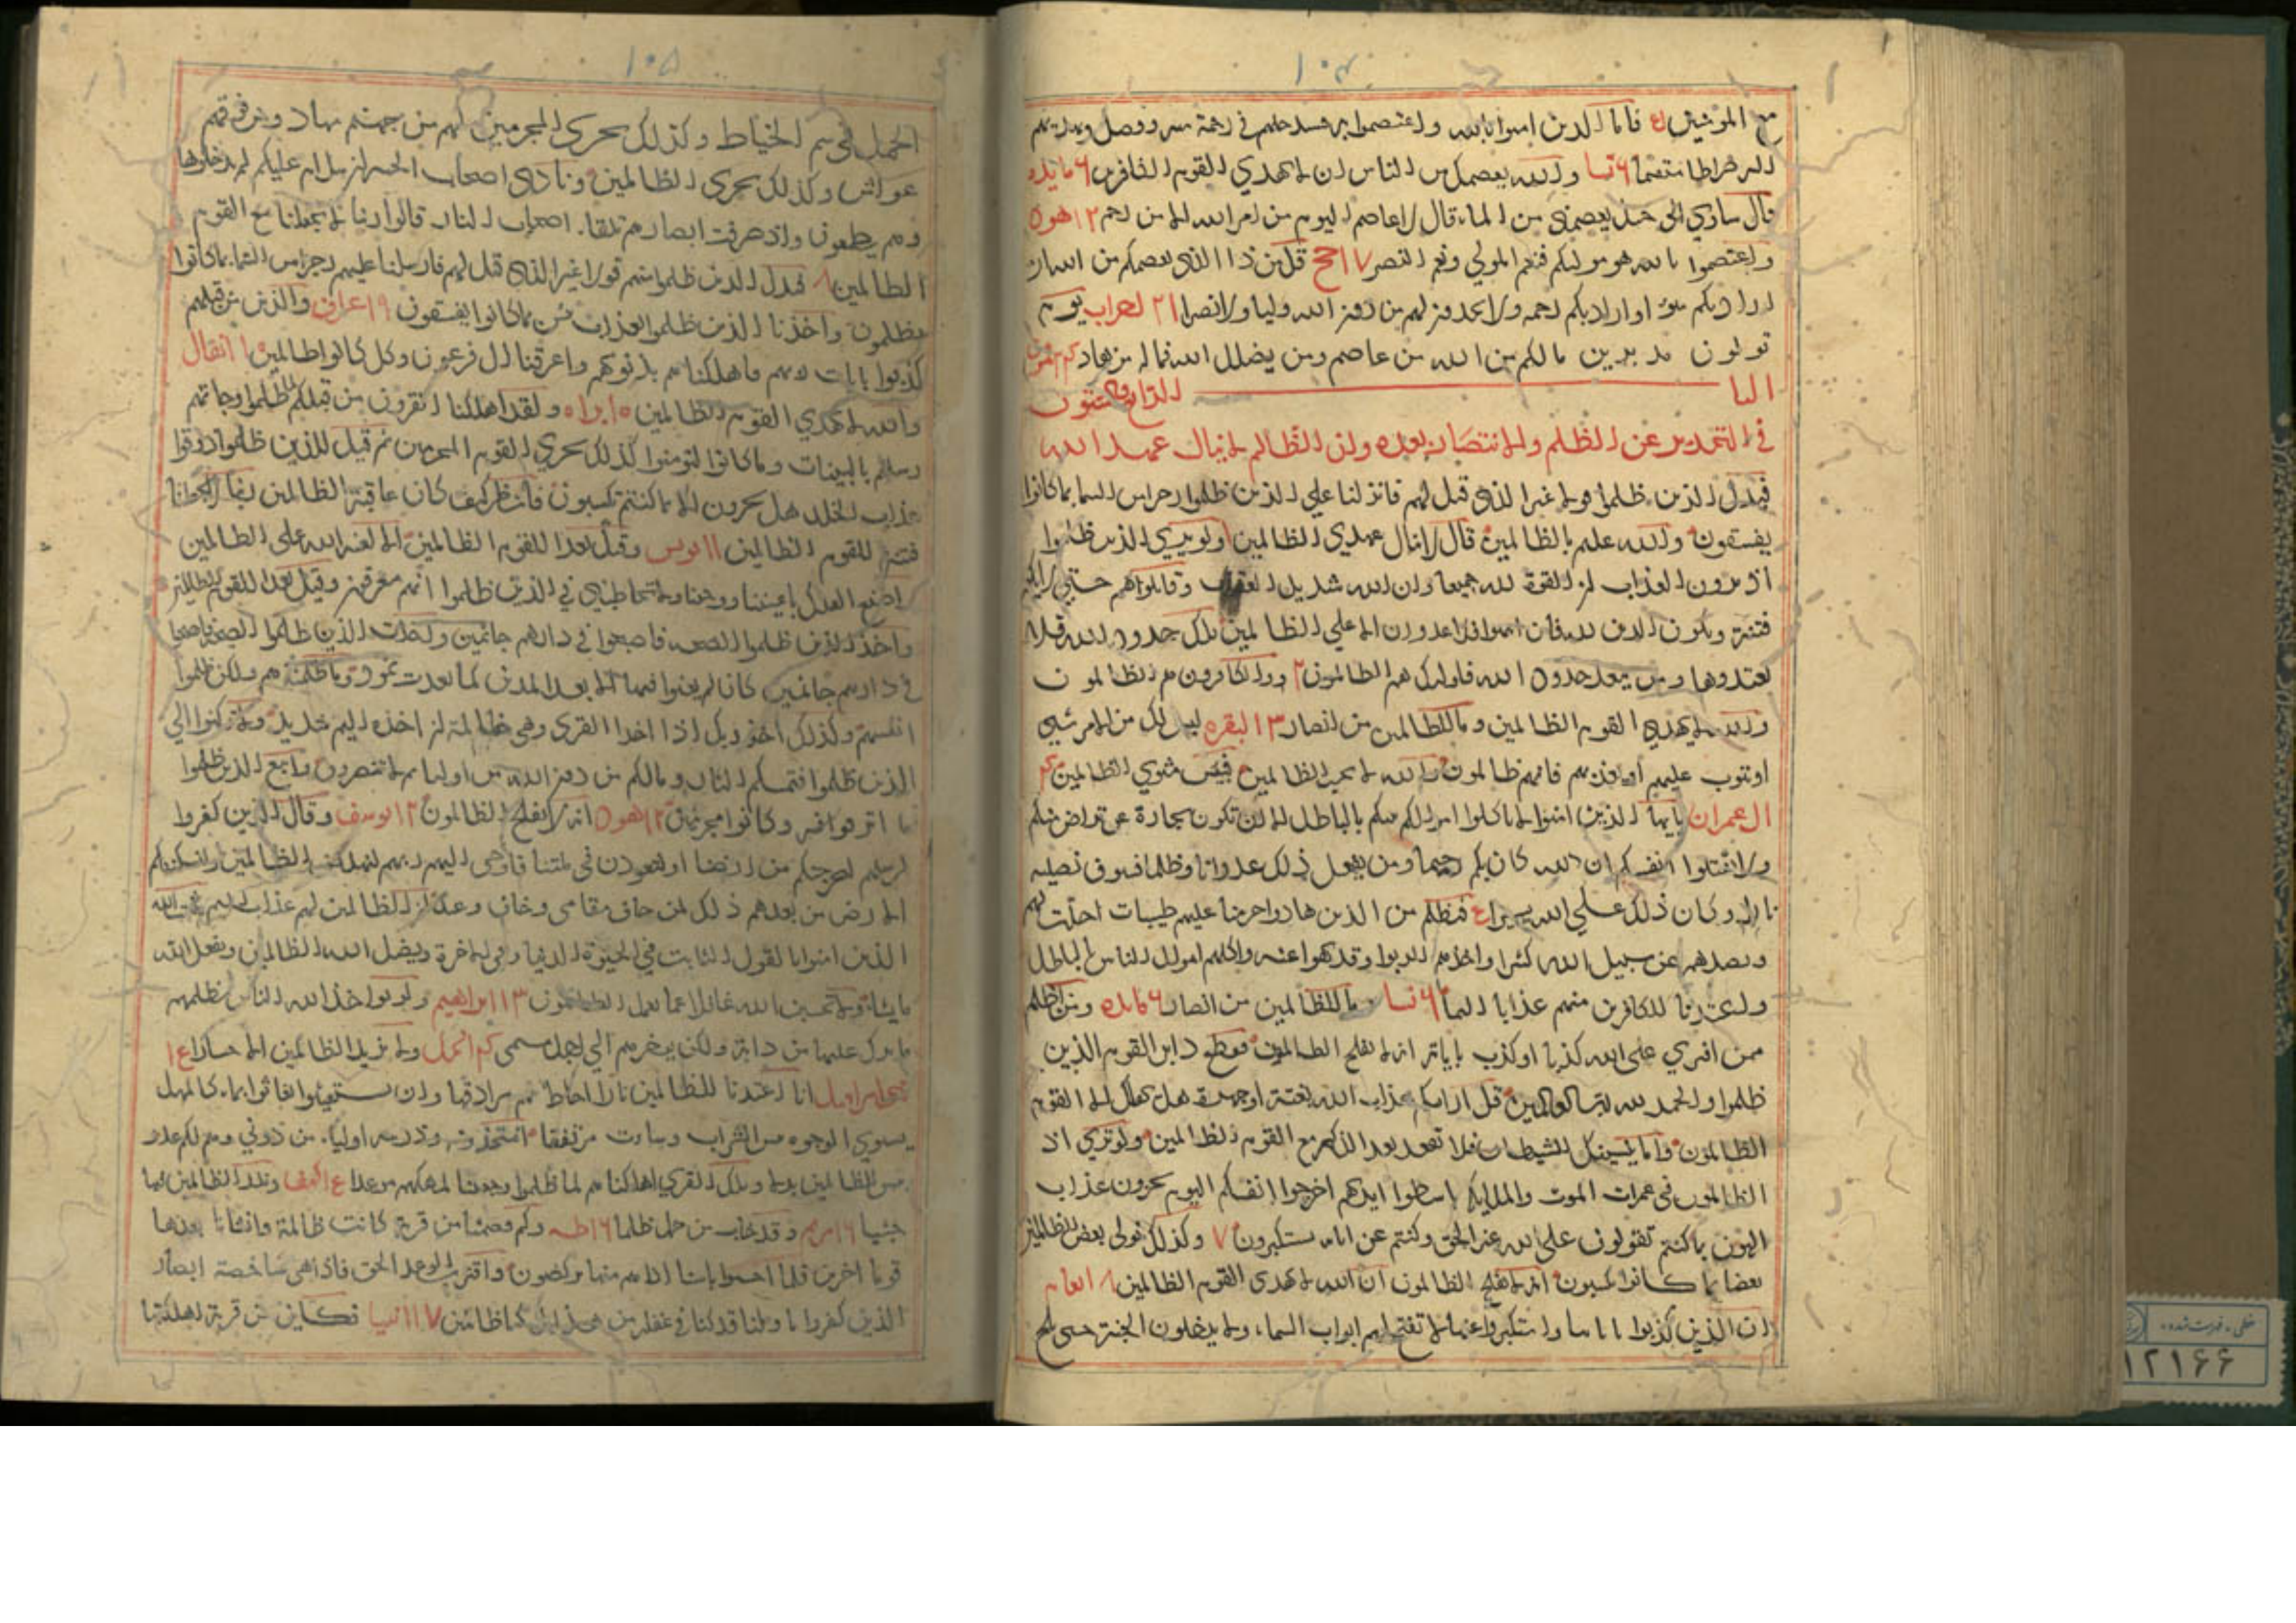 ١٠٤
مع المؤمنين ٤ فاما الذين امنوا بالله واعتصموا به فسيدخلهم في رحمة منه وفضل ويهديهم
اليه صراطا مستقيما ٦ نسا والله يعصمك من الناس ان الله لا يهدي القوم الكافرين ٦ مايده
قال ساوي الى جبل يعصمني من الماء قال لا عاصم اليوم من امر الله الا من رحم ١٢ هود
واعتصموا بالله هو موليكم فنعم المولي ونعم النصير ١٧ حج قل من ذا الذي يعصمكم من الله ان
اراد بكم سوء او اراد بكم رحمه ولا يجدون لهم من دون الله وليا ولا نصيرا ٢١ احزاب يوم
تولون مدبرين مالكم من الله من عاصم ومن يضلل الله فماله من هاد
الباب الرابع والستون
في التحذير عن الظلم والانتصار بعده وان الظالم لا ينال عهد الله
فبدل الذين ظلموا قولا غير الذي قيل لهم فانزلنا علي الذين ظلموا رجزا من السما بما كانوا
يفسقون والله عليم بالظالمين قال لا ينال عهدي الظالمين ولو يري الذين ظلموا
اذ يرون العذاب ان القوة لله جميعا وان الله شديد العقاب وقاتلوهم حتي لا يكون
فتنة ويكون الدين لله فان انتهوا فلا عدوان الا علي الظالمين تلك حدود الله فلا
تعتدوها ومن يتعد حدود الله فاولئك هم الظالمون ٢ والكافرون هم الظالمون
والله لا يهدي القوم الظالمين وما للظالمين من انصار ٣ البقره ليس لك من الامر شيئ
او يتوب عليهم او يعذبهم فانهم ظالمون والله لا يحب الظالمين فبئس مثوي الظالمين
ال عمران يايها الذين امنوا لا تاكلوا اموالكم بينكم بالباطل الا ان تكون تجارة عن تراض منكم
ولا تقتلوا انفسكم ان الله كان بكم رحيما ومن يفعل ذلك عدوانا وظلما فسوف نصليه
نارا وكان ذلك علي الله يسيرا ٤ فبظلم من الذين هادوا حرمنا عليهم طيبات احلت لهم
وبصدهم عن سبيل الله كثيرا واخذهم الربوا وقد نهوا عنه واكلهم اموال الناس بالباطل
واعتدنا للكافرين منهم عذابا اليما ٦ نسا وما للظالمين من انصار ٦ مايده ومن اظلم
ممن افتري على الله كذبا او كذب باياته انه لا يفلح الظالمون فقطع دابر القوم الذين
ظلموا والحمد لله رب العالمين قل ارايتكم عذاب الله بغتة او جهرة هل يهلك الا القوم
الظالمون واما ينسينك الشيطان فلا تقعد بعد الذكري مع القوم الظالمين ولو تري اذ
الظالمون في غمرات الموت والملايكه باسطوا ايديهم اخرجوا انفسكم اليوم تجزون عذاب
الهون بما كنتم تقولون على الله غير الحق وكنتم عن اياته تستكبرون ٧ وكذلك نولى بعض الظالمين
بعضا بما كانوا يكسبون انه لا يفلح الظالمون ان الله لا يهدى القوم الظالمين ٨ انعام
ان الذين كذبوا باياتنا واستكبروا عنها لا تفتح لهم ابواب السماء ولا يدخلون الجنة حتى يلج
١٠٥
الجمل في سم الخياط وكذلك نجزي المجرمين لهم من جهنم مهاد ومن فوقهم
غواش وكذلك نجزي الظالمين ونادى اصحاب الجنة ان سلام عليكم لم يدخلوها
وهم يطمعون واذ صرفت ابصارهم تلقاء اصحاب النار قالوا ربنا لا تجعلنا مع القوم
الظالمين ٨ فبدل الذين ظلموا منهم قولا غير الذي قيل لهم فارسلنا عليهم رجزا من السماء بما كانوا
يظلمون واخذنا الذين ظلموا بعذاب بئس بما كانوا يفسقون ٩ اعراف والذين من قبلهم
كذبوا بايات ربهم فاهلكناهم بذنوبهم واغرقنا ال فرعون وكل كانوا ظالمين ١٠ انفال
والله لا يهدي القوم الظالمين ١٠ براه ولقد اهلكنا القرون من قبلكم لما ظلموا وجاءتهم
رسلهم بالبينات وما كانوا ليؤمنوا كذلك نجزي القوم المجرمين ثم قيل للذين ظلموا ذوقوا
عذاب الخلد هل تجزون الا بما كنتم تكسبون فانظر كيف كان عاقبة الظالمين ربنا لا تجعلنا
فتنة للقوم الظالمين ١١ يونس وقيل بعدا للقوم الظالمين الا لعنة الله على الظالمين
واصنع الفلك باعيننا ووحينا ولا تخاطبني في الذين ظلموا انهم مغرقون وقيل بعدا للقوم الظالمين
واخذ الذين ظلموا الصيحه فاصبحوا في دارهم جاثمين واخذت الذين ظلموا الصيحة فاصبحوا
في دارهم جاثمين كان لم يغنوا فيها الا بعدا لمدين كما بعدت ثمود وما ظلمناهم ولكن ظلموا
انفسهم وكذلك اخذ ربك اذا اخذ القرى وهي ظالمة ان اخذه اليم شديد ولا تركنوا الي
الذين ظلموا فتمسكم النار ومالكم من دون الله من اولياء ثم لا تنصرون واتبع الذين ظلموا
ما اترفوا فيه وكانوا مجرمين ١٢ هود انه لا يفلح الظالمون ١٢ يوسف وقال الذين كفروا
لرسلهم لنخرجنكم من ارضنا او لتعودن في ملتنا فاوحى اليهم ربهم لنهلكن الظالمين ولنسكننكم
الارض من بعدهم ذلك لمن خاف مقامى وخاف وعيد ان الظالمين لهم عذاب اليم يثبت الله
الذين امنوا بالقول الثابت في الحيوة الدنيا وفي الاخرة ويضل الله الظالمين ويفعل الله
ما يشاء ولا تحسبن الله غافلا عما يعمل الظالمون ١٣ ابراهيم ولو يواخذ الله الناس بظلمهم
ما ترك عليها من دابة ولكن يؤخرهم الي اجل مسمى النحل ولا يزيد الظالمين الا خسارا
بنى اسرائيل انا اعتدنا للظالمين نارا احاط بهم سرادقها وان يستغيثوا يغاثوا بماء كالمهل
يشوي الوجوه بئس الشراب وساءت مرتفقا افتتخذونه وذريته اولياء من دوني وهم لكم عدو
بئس للظالمين بدلا وتلك القرى اهلكناهم لما ظلموا وجعلنا لمهلكهم موعدا الكهف ونذر الظالمين فيها
جثيا ١٦ مريم وقد خاب من حمل ظلما ١٦ طه وكم قصمنا من قرية كانت ظالمة وانشانا بعدها
قوما اخرين فلما احسوا باسنا اذا هم منها يركضون واقترب الوعد الحق فاذا هي شاخصة ابصار
الذين كفروا يا ويلنا قد كنا في غفلة من هذا بل كنا ظالمين ١٧ انبيا فكاين من قرية اهلكناها
خطی - فهرست شده
١٢١٦٦